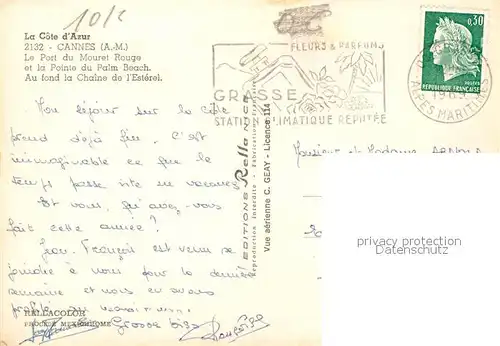 10/c
La Côte d'Azur
2132 - CANNES (A.-M.)
Le Port du Mouret Rouge
et la Pointe du Palm Beach.
Au fond la Chaîne de l'Estérel.
FLEURS & PARFUMS
GRASSE
STATION CLIMATIQUE RÉPUTÉE
0,30
POSTES
REPUBLIQUE FRANÇAISE
ALPES MARITIMES
Mon séjour sur la côte
prend déjà fin. C'est
inimaginable ce que le
temps passe vite en vacances
Et vous, qu'avez-vous
fait cette année?
Jean François est venu se
joindre à nous pour la dernière
semaine et nous en avons
profité au maximum.
Grosse bise
Françoise
EDITIONS Rella NICE
Reproduction Interdite - Fabrication Française
Vue aérienne C. GEAY - Licence 114
Monsieur et Madame
privacy protection
Datenschutz
RELLACOLOR
PROCÉDÉ MEXICHROME